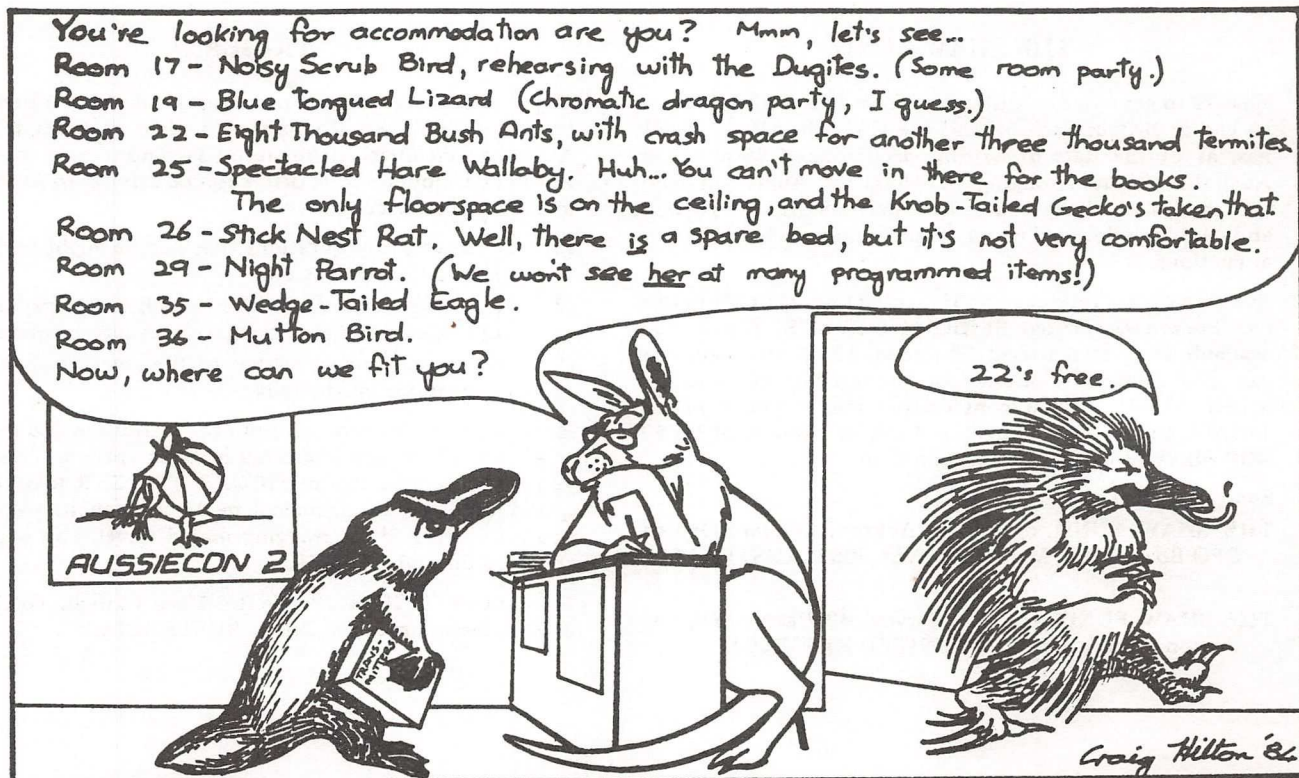 You're looking for accommodation are you? Mmm, let's see...
Room 17 - Noisy Scrub Bird, rehearsing with the Dugites. (Some room party.)
Room 19 - Blue Tongued Lizard (Chromatic dragon party, I guess.)
Room 22 - Eight Thousand Bush Ants, with crash space for another three thousand termites.
Room 25 - Spectacled Hare Wallaby. Huh... You can't move in there for the books.
The only floorspace is on the ceiling, and the Knob-Tailed Gecko's taken that.
Room 26 - Stick Nest Rat. Well, there is a spare bed, but it's not very comfortable.
Room 29 - Night Parrot. (We won't see her at many programmed items!)
Room 35 - Wedge-Tailed Eagle.
Room 36 - Mutton Bird.
Now, where can we fit you?
22's free.
AUSSIECON 2
TRANS-
Craig Hilton '84